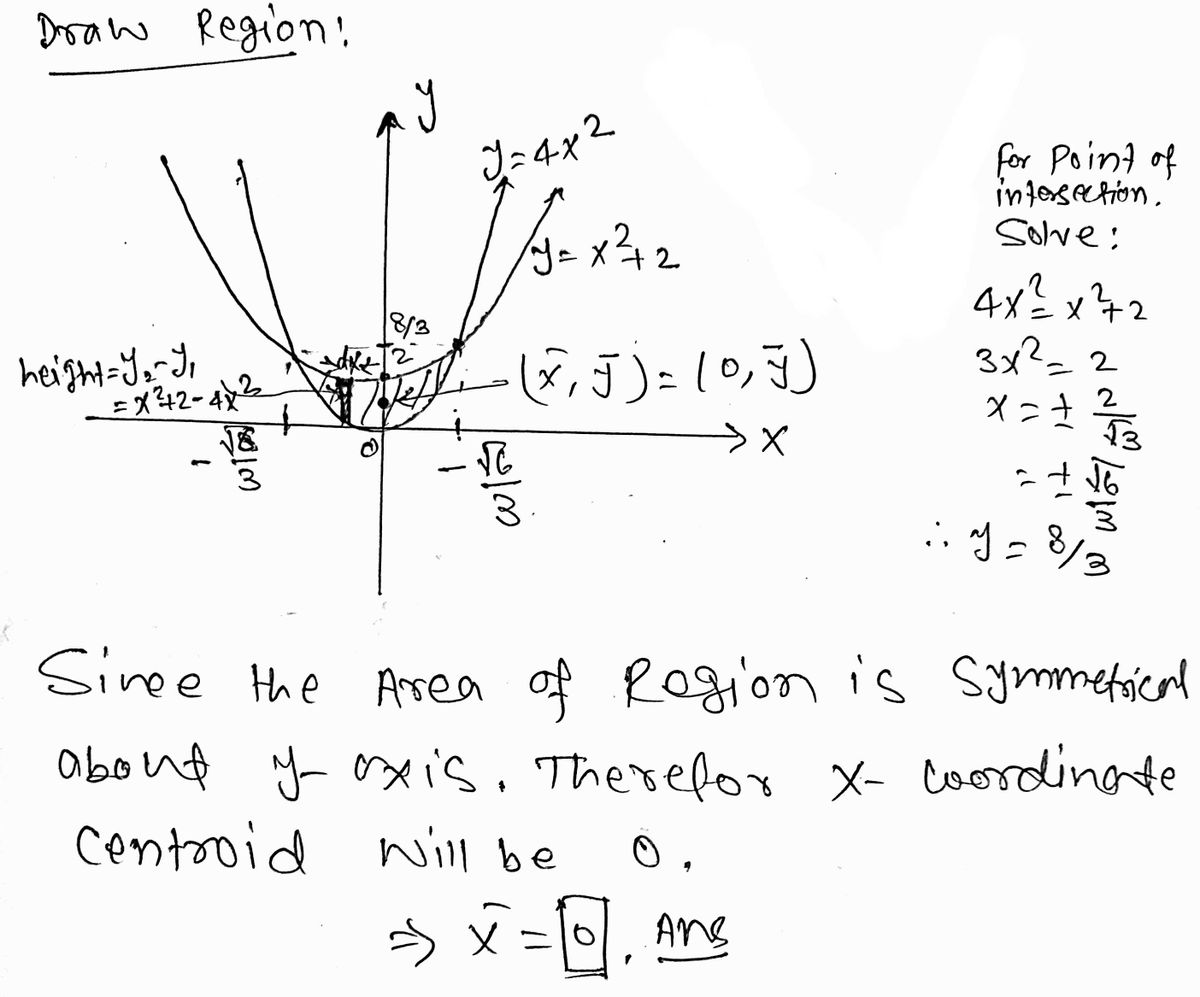 Draw Region:
y
y=4x²
y=x²+2
8/3
dx
2
height=y₂-y₁
=x²+2-4x²
(x̄, ȳ)=(0,ȳ)
x
0
-√6/3
-√6/3
for Point of
intersection.
Solve:
4x²=x²+2
3x²=2
x=±2/√3
=±√6/3
∴ y=8/3
Since the Area of Region is Symmetrical
about y-axis. Therefor x-coordinate
Centroid will be 0,
⇒ x̄=0, Ans